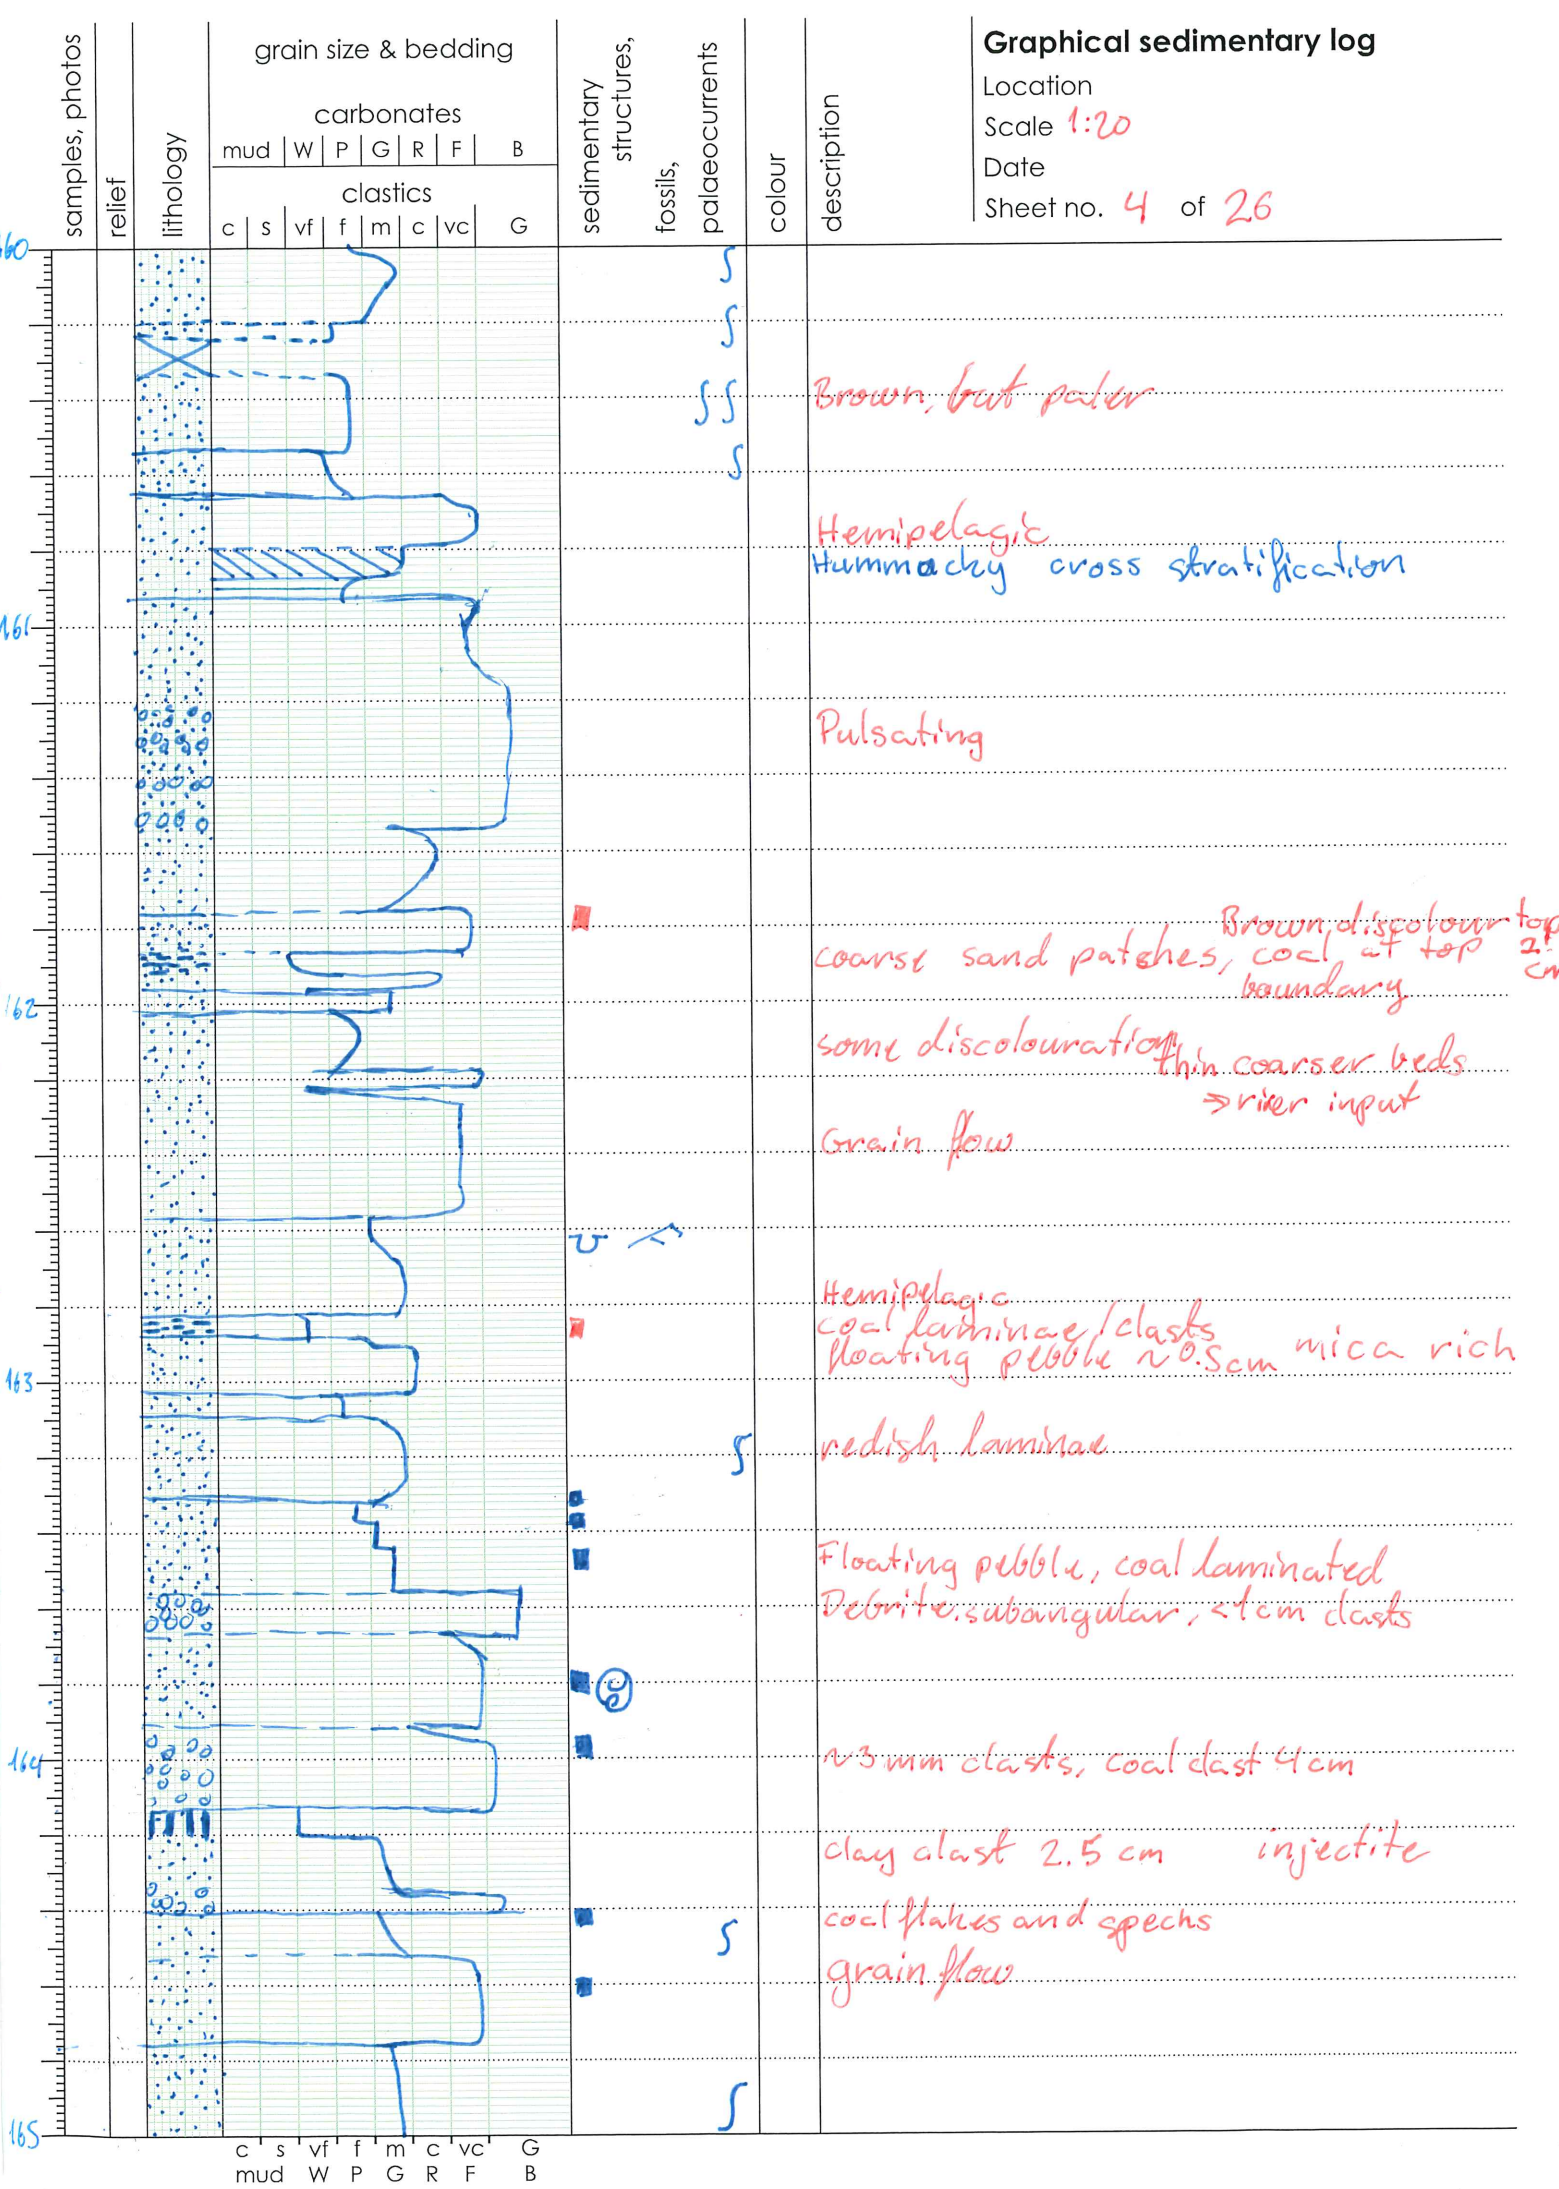 samples, photos
relief
lithology
grain size & bedding
carbonates
mud W P G R F B
clastics
c s vf f m c vc G
sedimentary
structures,
fossils,
palaeocurrents
colour
description
Graphical sedimentary log
Location
Scale 1:20
Date
Sheet no. 4 of 26
Brown, but paler
Hemipelagic
Hummocky cross stratification
161
Pulsating
Brown discolour top
coarse sand patches, coal at top
cm
boundary
162
some discolouration
thin coarser beds
→ river input
Grain flow
Hemipelagic
coal laminae/clasts
floating pebble ~0.5cm mica rich
163
redish laminae
Floating pebble, coal laminated
Debrite. subangular, <1cm clasts
164
~3mm clasts, coal clast 4cm
clay clast 2.5 cm injectite
coal flakes and specks
grain flow
165
c s vf f m c vc G
mud W P G R F B